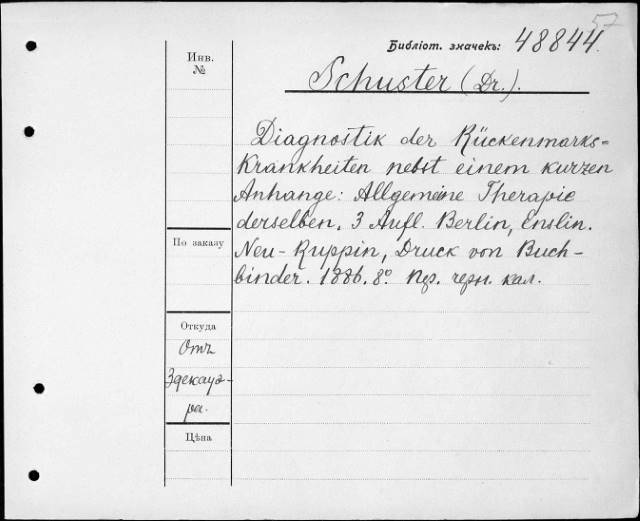 57
Библіот. значекъ: 48844.
Инв.
№
Schuster (Dr.).
Diagnostik der Rückenmarks=
Krankheiten nebst einem kurzen
Anhange: Allgemeine Therapie
derselben. 3 Aufl. Berlin, Enslin.
По заказу
Neu-Ruppin, Druck von Buch-
binder. 1886. 8°. Пер. черн. кал.
Откуда
Отъ
Здекауэ-
ра.
Цѣна